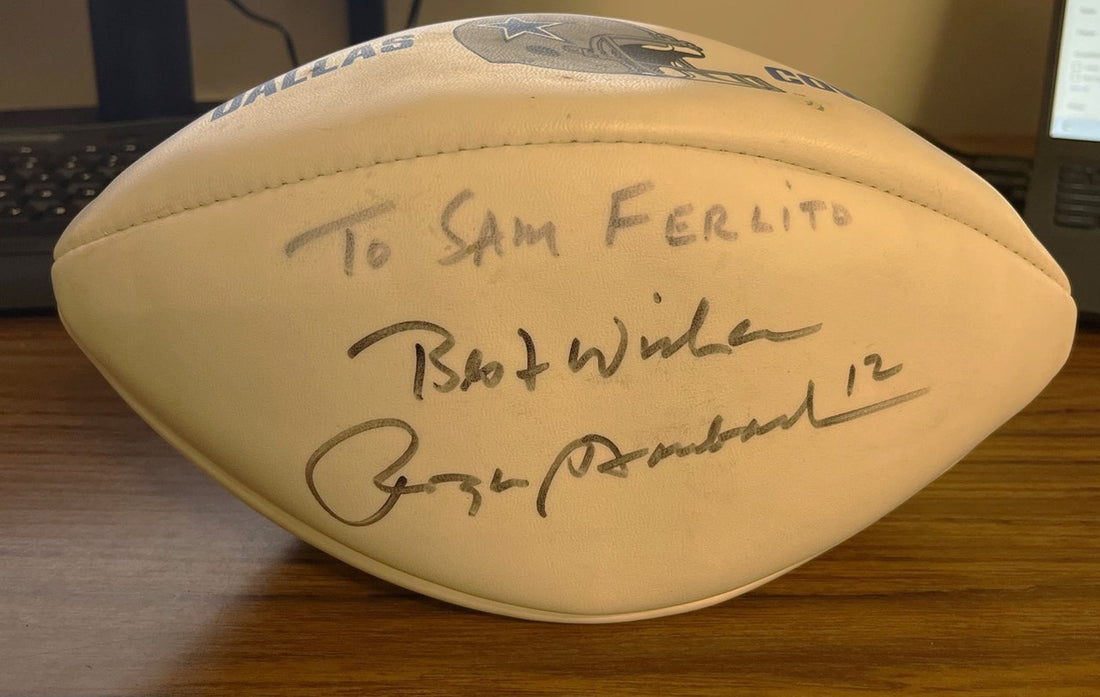 DALLAS CO
To SAM FERLITO
Best Wishes
Roger Staubach 12